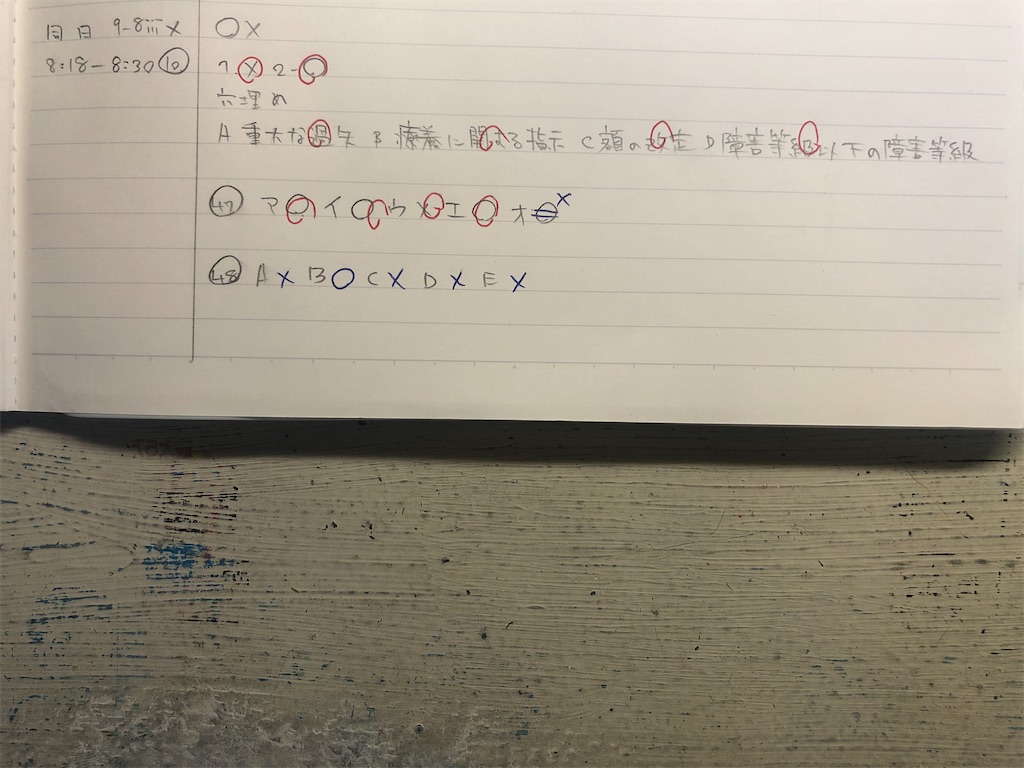 同日 9-8iii× ○×
8:18-8:30⑫ 1 × 2-○
穴埋め
A 重大な過失 B 療養に関する指示 C 額の改定 D 障害等級以下の障害等級
㊼ ア○ イ○ ウ× エ○ オ×
㊽ A× B○ C× D× E×